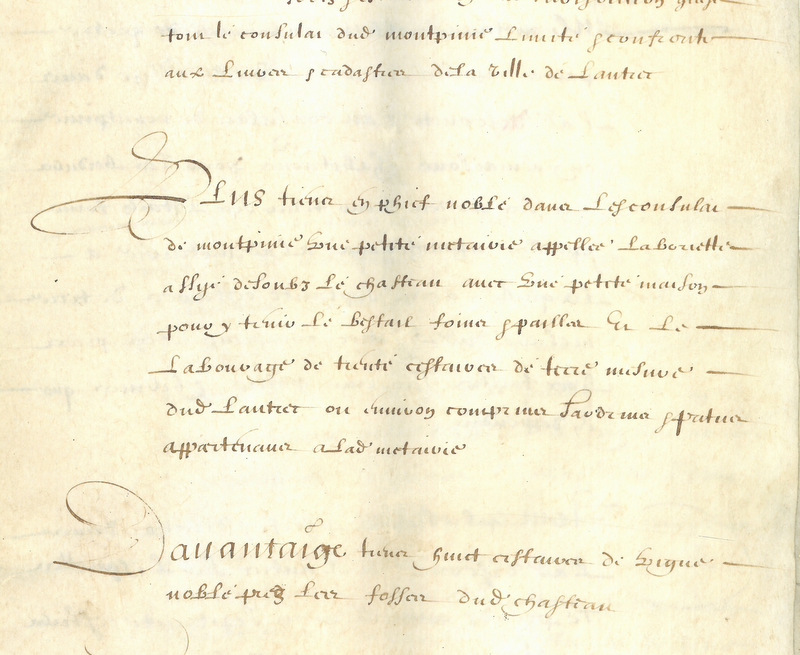 tout le consulat dud montpinie limité & confronté
aux livres & cadastres dela ville de Lautrec
Plus tienent en phief noble dans les consulat
de montpinie une petite metairie appellee Laboriette
assize desoubz le chasteau avec une petite maison
pour y tenir le bestail foines & pailles Et le
Labourage de trente cestairees de terre mesure
dud Lautrec ou environ comprines Jardrines & patus
appartenans a lad metairie
Davantaige tienent huict cestairees de vigne
noble prez les fosses dud chasteau